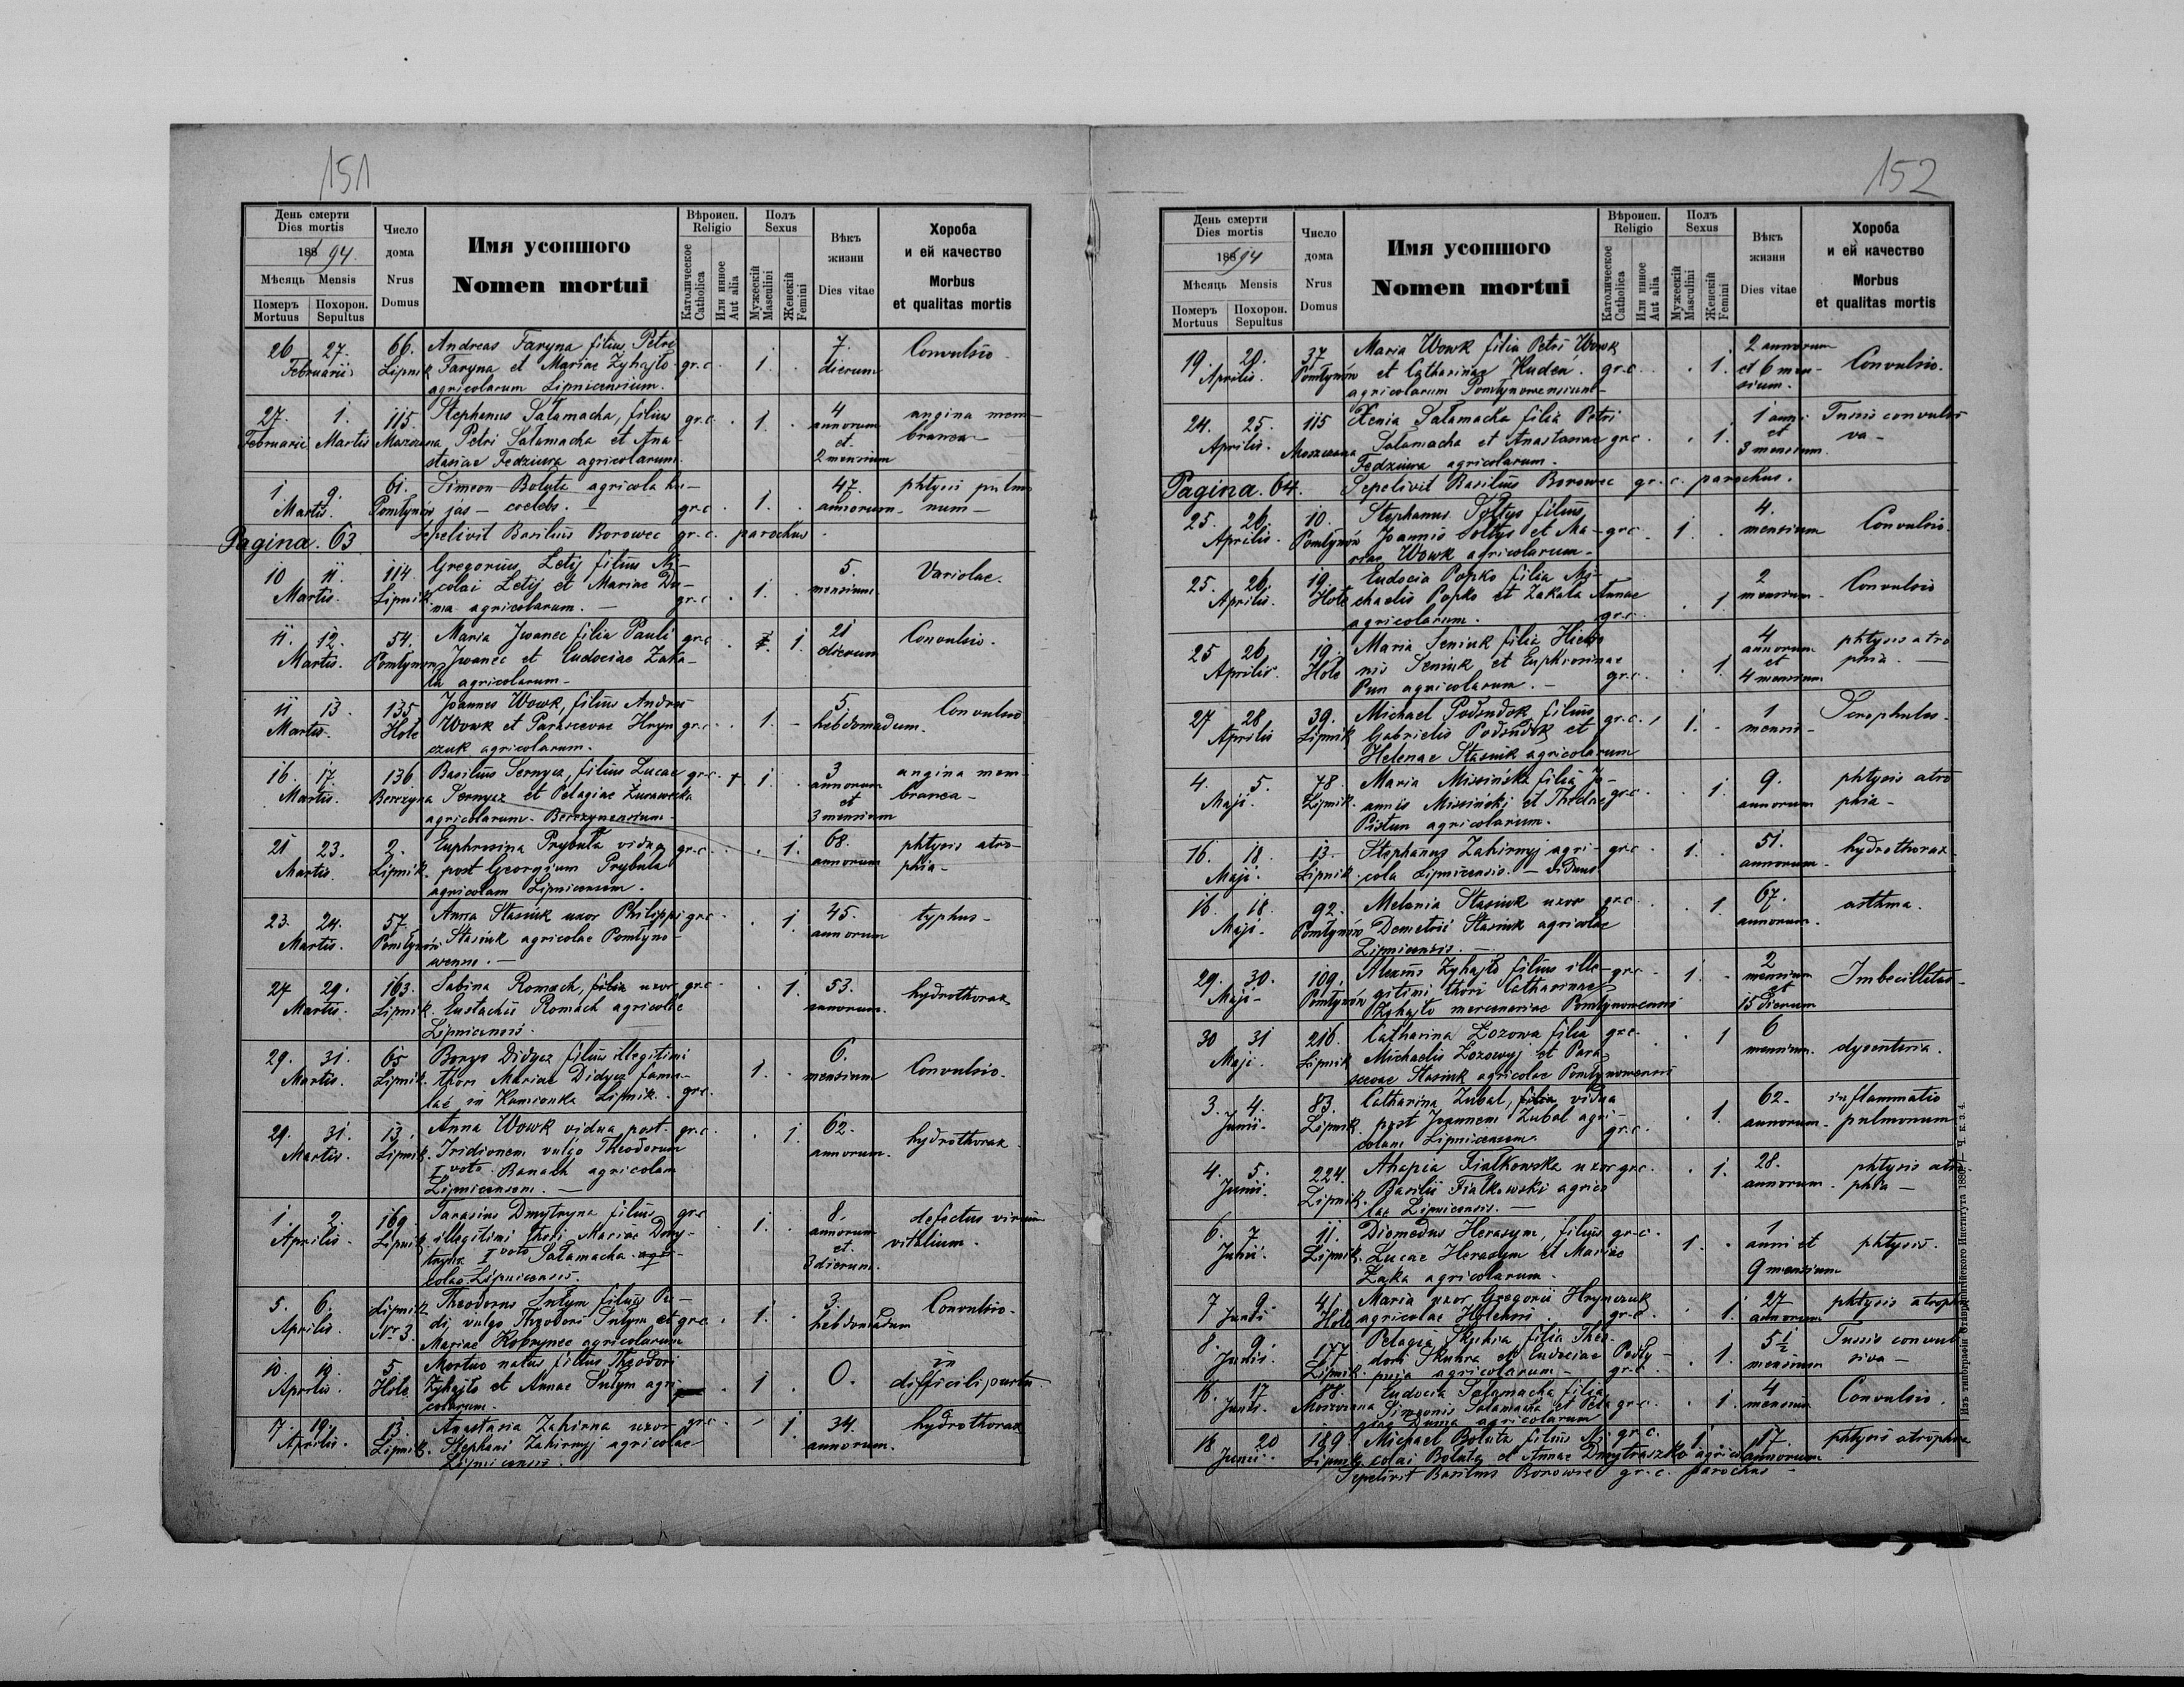 151
День смерти
Dies mortis
188 94.
Мѣсяць Mensis
Померъ Mortuus
Похорон. Sepultus
Число дома
Nrus Domus
Имя усопшого
Nomen mortui
Вѣроисп.
Religio
Католическое Catholica
Или инное Aut alia
Полъ
Sexus
Мужескій Masculini
Женскій Femini
Вѣкъ жизни
Dies vitae
Хороба
и ей качество
Morbus
et qualitas mortis
26 27. 66. Andreas Faryna filius Petri 7.
Februarii Lipnik Faryna et Mariae Zyhajło gr.c 1. dierum Convulsio.
agricolarum Lipnicensium.
27. 1. 115. Stephanus Sałamacha, filius gr.c. 1. 4 angina mem-
Februarii Martis Moszczana Petri Sałamacha et Ana- annorum branea-
stasiae Fedziura agricolarum. et 2 mensium
1 9. 61. Simeon Boluta agricola hu- 47. phtysis pulmo
Martis. Pomłynów jas - coelebs. - gr.c 1. annorum. num -
Pagina. 63 Sepelivit Basilius Borowec gr.c. parochus.
10 11. 114 Gregorius Letij filius Ni- 5. Variolae.
Martis. Lipnik. colai Letij et Mariae Du- 1. mensium
ma agricolarum. - gr.c
11. 12. 54. Maria Jwanec filia Pauli gr.c 1. 21 Convulsio.
Martis. Pomłynów Jwanec et Eudociae Zaka- dierum
ła agricolarum-
11 13. 135 Joannes Wowk, filius Andreae 5. Convulsio
Martis. Hole Wowk et Parascevae Hryn gr.c. 1. - hebdomadum.
czuk agricolarum.
16. 17. 136 Basilius Sernycz, filius Lucae gr.c. 1. 3 angina mem-
Martis. Berezyna Sernycz et Pelagiae Żurawecka annorum branea-
agricolarum Berezynensium. et 3 mensium
21 23. 2. Euphrosina Prybuła vidua gr.c. 1. 68. phtysis atro-
Martis. Lipnik. post Georgium Prybuła annorum phia-
agricolam Lipnicensem.
23. 24. 57. Anna Stasiuk uxor Philippi gr.c. 1. 45. typhus-
Martis. Pomłynów Stasiuk agricolae Pomłyno- annorum
wensis. -
27 29. 163. Sabina Romach, filia uxor gr.c 1. 53. hydrothorax
Martis. Lipnik. Eustachii Romach agricolae annorum.
Lipnicensis.
29. 31. 65 Borys Didycz filius illegitimi 6.
Martis. Lipnik. thori Mariae Didycz famu- 1. mensium Convulsio.
lae in Kamionka Lipnik. gr.c.
29. 31. 13. Anna Wowk vidua post gr.c. 1. 62. hydrothorax
Martis. Lipnik. Tridionem vulgo Theodorum annorum.
I voto Banach agricolam
Lipnicensem. -
1. 2. 169. Tarasius Dmytryna filius gr.c 8. defectus virium
Aprilis. Lipnik. illegitimi thori Mariae Dmy- 1. annorum vitalium.
tryna I voto Sałamacha agri- et
colae Lipnicensis. 3 dierum.
5. 6. Lipnik Theodorus Sułym filius Pe- 3. Convulsio.
Aprilis. Nr 3. di, vulgo Theodori Sułym et gr.c. 1. hebdomadum
Mariae Kobrynec agricolarum
10. 10. 5. Mortuo natus filius Theodori 0. in
Aprilis. Hole Zyhajło et Annae Sułym agri- 1 difficili partu.
colarum.
7. 19. 13. Anastasia Zahirna uxor gr.c. - 1. 34. hydrothorax
Aprilis. Lipnik. Stephani Zahirnyj agricolae annorum.
Lipnicensis.
152
День смерти
Dies mortis
188 94
Мѣсяць Mensis
Померъ Mortuus
Похорон. Sepultus
Число дома
Nrus Domus
Имя усопшого
Nomen mortui
Вѣроисп.
Religio
Католическое Catholica
Или инное Aut alia
Полъ
Sexus
Мужескій Masculini
Женскій Femini
Вѣкъ жизни
Dies vitae
Хороба
и ей качество
Morbus
et qualitas mortis
19. 20. 37 Maria Wowk filia Petri Wowk 2 annorum
Aprilis. Pomłynów et Catharinae Kudea. gr.c. 1. et 6 men- Convulsio.
agricolarum Pomłynowensium- sium.
24. 25. 115 Xenia Sałamacha filia Petri 1 anni Tussis convulsi
Aprilis. Moszczana Sałamacha et Anastasiae gr.c. 1. et va-
Fedziura agricolarum. 3 mensium.
Pagina. 64. Sepelivit Basilius Borowec gr.c. parochus.
25. 26. 10. Stephanus Sołtys filius 4.
Aprilis. Pomłynów Joannis Sołtys et Ma- gr.c. 1. mensium Convulsio.
riae Wowk agricolarum-
25. 26. 19. Eudocia Popko filia Mi- 2 Convulsio
Aprilis. Hole chaelis Popko et Zakała Annae 1. mensium-
agricolarum. gr.c.
25 26. 19. Maria Seniuk filia Hiero 4 phtysis atro
Aprilis. Hole nis Seniuk et Euphrosinae 1. annorum phia. -
Pun agricolarum. - gr.c. et 4 mensium
27 28 39. Michael Podsudok filius gr.c. 1. 1 Scrophulas-
Aprilis Lipnik Gabrielis Podsudok et mensis-
Helenae Stasiuk agricolarum
4. 5. 78. Maria Missińska filia Jo- 9. phtysis atro
Maji. Lipnik. annis Missiński et Theclae gr.c. 1. annorum phia-
Pistun agricolarum.
16. 18. 13. Stephanus Zahirnyj agri- gr.c. 1. 51. hydrothorax.
Maji. Lipnik. cola Lipnicensis. - viduus. annorum.
16. 18. 92. Melania Stasiuk uxor gr.c. 1. 67. asthma.
Maji. Pomłynów Demetrii Stasiuk agricolae annorum.
Lipnicensis. -
29. 30. 109. Alexius Zyhajło filius ille- gr.c. 1. 2 mensium Imbecillitas-
Maji- Pomłynów gitimi thori Catharinae et
Zyhajło mercenariae Pomłynowensis 15 dierum
30 31 216. Catharina Lozowa filia gr.c. 1 6
Maji. Lipnik Michaelis Lozowyj et Para- mensium. dysenteria.
scevae Stasiuk agricolae Pomłynowensis
3. 4. 83. Catharina Zubal, filia vidua 62. inflammatio
Junii. Lipnik. post Joannem Zubal agri- 1. annorum. pulmonum
colam Lipnicensem. gr.c.
4. 5. 224. Ahapia Fiałkowska uxor gr.c. 1. 28. phtysis atro
Junii. Lipnik. Basilii Fiałkowski agrico annorum. phia -
lae Lipnicensis. -
6. 7 11. Diomedus Herasym, filius gr.c. 1
Junii. Lipnik. Lucae Herasym et Mariae 1. anni et phtysis.
Zaka agricolarum. 9 mensium
7 9. 41 Maria uxor Gregorii Hrynczuk 27 phtysis atrophia
Junii Hole agricolae Holensis gr.c. 1. annorum
8. 9. 177 Pelagia Skunra filia Theo- 5 1/2 Tussis convul
Junii. Lipnik. dori Skunra et Eudociae Podły- 1. mensium siva-
puja agricolarum- gr.c.
16. 17 88. Eudocia Sałamacha filia 4 Convulsio.
Junii. Moszczana Simeonis Sałamacha et Pela gr.c. 1. mensium
giae Duma agricolarum
18 20 189. Michael Boluta filius Ni gr.c. 1. 17. phtysis atrophia
Junii. Lipnik. colai Boluta et Annae Dmytraszko agricol annorum
Sepelivit Basilius Borowiec gr.c. parochus -
Изъ типографіи Ставропигійского Института 1886. — Ч. к. з. 4.